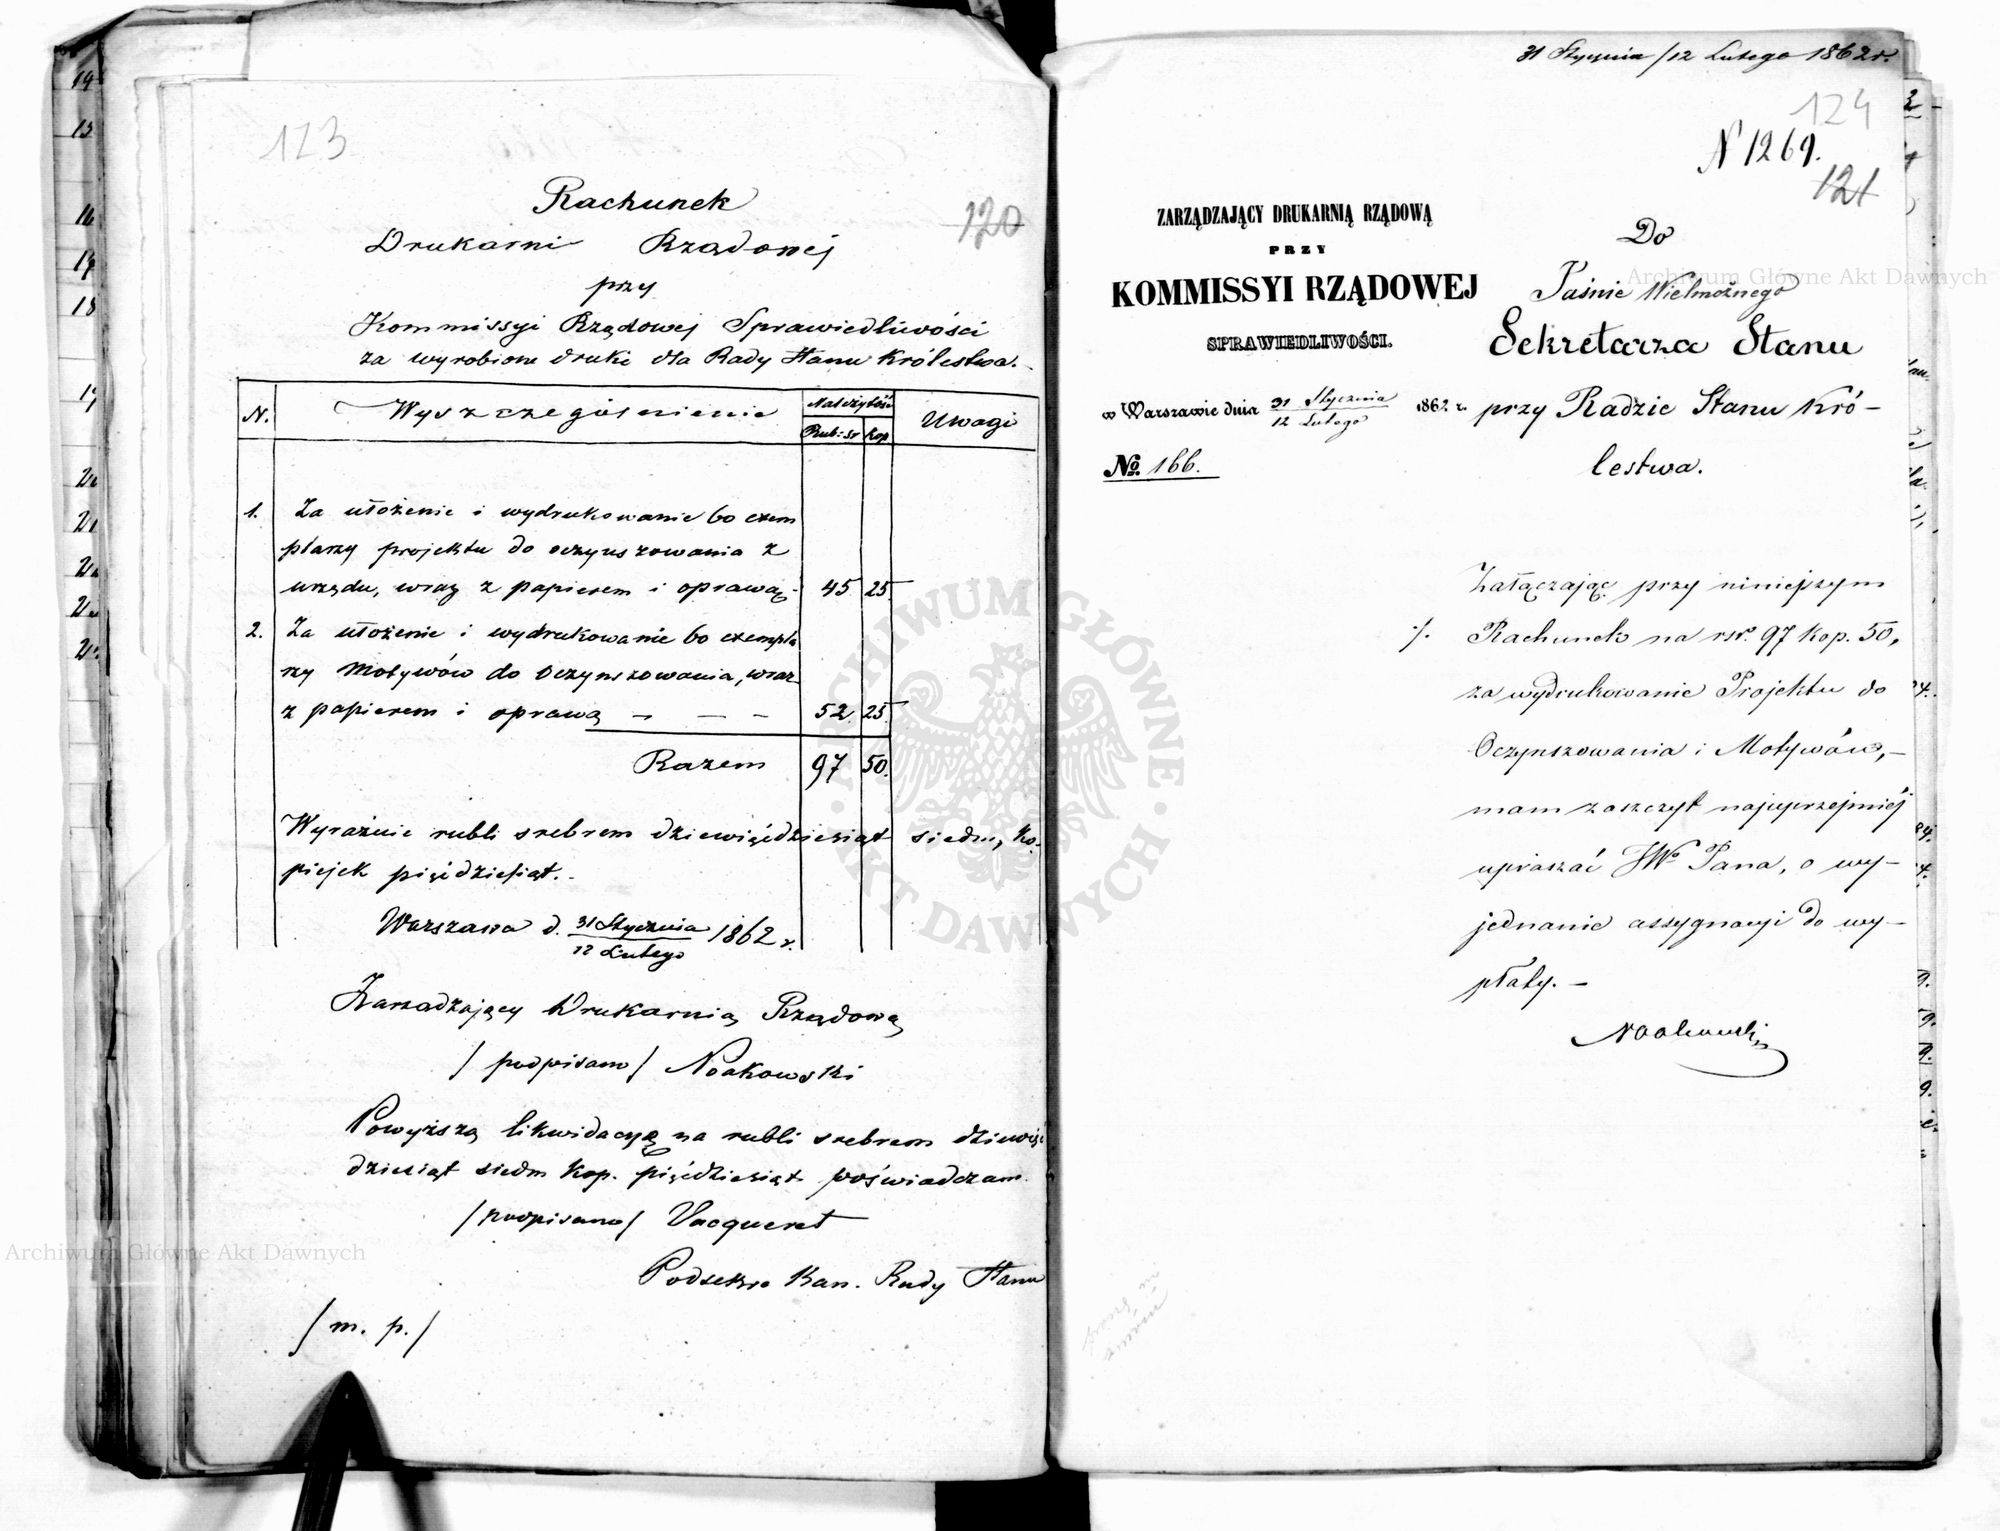 123
120
Rachunek
Drukarni Rządowej
przy
Kommissyi Rządowej Sprawiedliwości
za wyrobione druki dla Rady Stanu Królestwa.
N. Wyszczególnienie Należytość Uwagi
Rub: sr Kop
1. Za ułożenie i wydrukowanie 60 exem
plarzy projektu do oczynszowania z
urzędu, wraz z papierem i oprawą 45 25
2. Za ułożenie i wydrukowanie 60 exempla
rzy Motywów do Oczynszowania, wraz
z papierem i oprawą — — — 52 25
Razem 97 50.
Wyraźnie rubli srebrem dziewięćdziesiąt siedm, ko-
piejek pięćdziesiąt.
Warszawa d. 31 Stycznia / 12 Lutego 1862 r.
Zarządzający Drukarnią Rządową
/ podpisano / Noakowski
Powyższą likwidacyę na rubli srebrem dziewięć
dziesiąt siedm kop. pięćdziesiąt poświadczam.
/ podpisano / Vacqueret
Podsekre Kan. Rady Stanu
/ m. p. /
31 Stycznia / 12 Lutego 1862 r.
124
N 1269.
121
ZARZĄDZAJĄCY DRUKARNIĄ RZĄDOWĄ
PRZY
KOMMISSYI RZĄDOWEJ
SPRAWIEDLIWOŚCI.
w Warszawie dnia 31 Stycznia / 12 Lutego 1862 r.
No. 166.
Do
Jaśnie Wielmożnego
Sekretarza Stanu
przy Radzie Stanu Kró-
lestwa.
Załączając przy niniejszym
./. Rachunek na rsr. 97 kop. 50,
za wydrukowanie Projektu do
Oczynszowania i Motywów, —
mam zaszczyt najuprzejmiej
upraszać JWo Pana, o wy-
jednanie assygnacyi do wy-
płaty. —
Noakowski
Archiwum Główne Akt Dawnych
Archiwum Główne Akt Dawnych
ARCHIWUM GŁÓWNE · AKT DAWNYCH ·
14
15
16
17
18
19